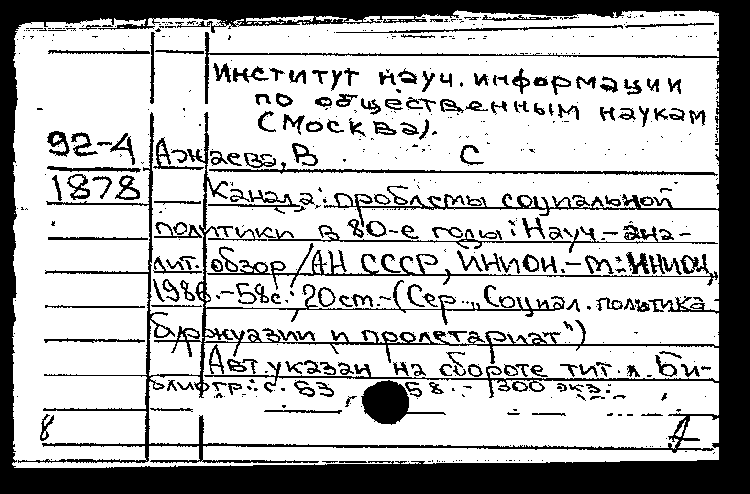 Институт науч. информации
по общественным наукам
(Москва).
92-4 Ажаева, В С
1878 Канада: проблемы социальной
политики в 80-е годы: Науч.-ана-
лит. обзор / АН СССР, ИНИОН.-М.: ИНИОН,
1986.-58с.; 20см.-(Сер. „Социал. политика
буржуазии и пролетариат")
Авт. указан на обороте тит. л. Би-
блиогр.: с. 53 58.- 1300 экз.
8 А